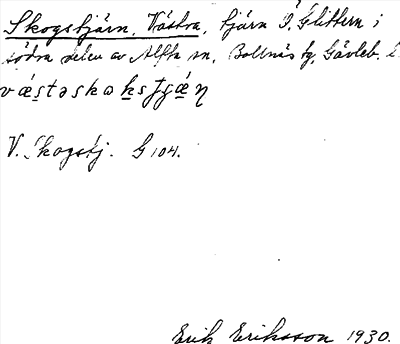 Skogstjärn, Västra, tjärn Ö. Glittern i
södra delen av Alfta sn, Bollnäs tg, Gävleb. l.
V. Skogstj. G 104.
Erik Eriksson 1930.